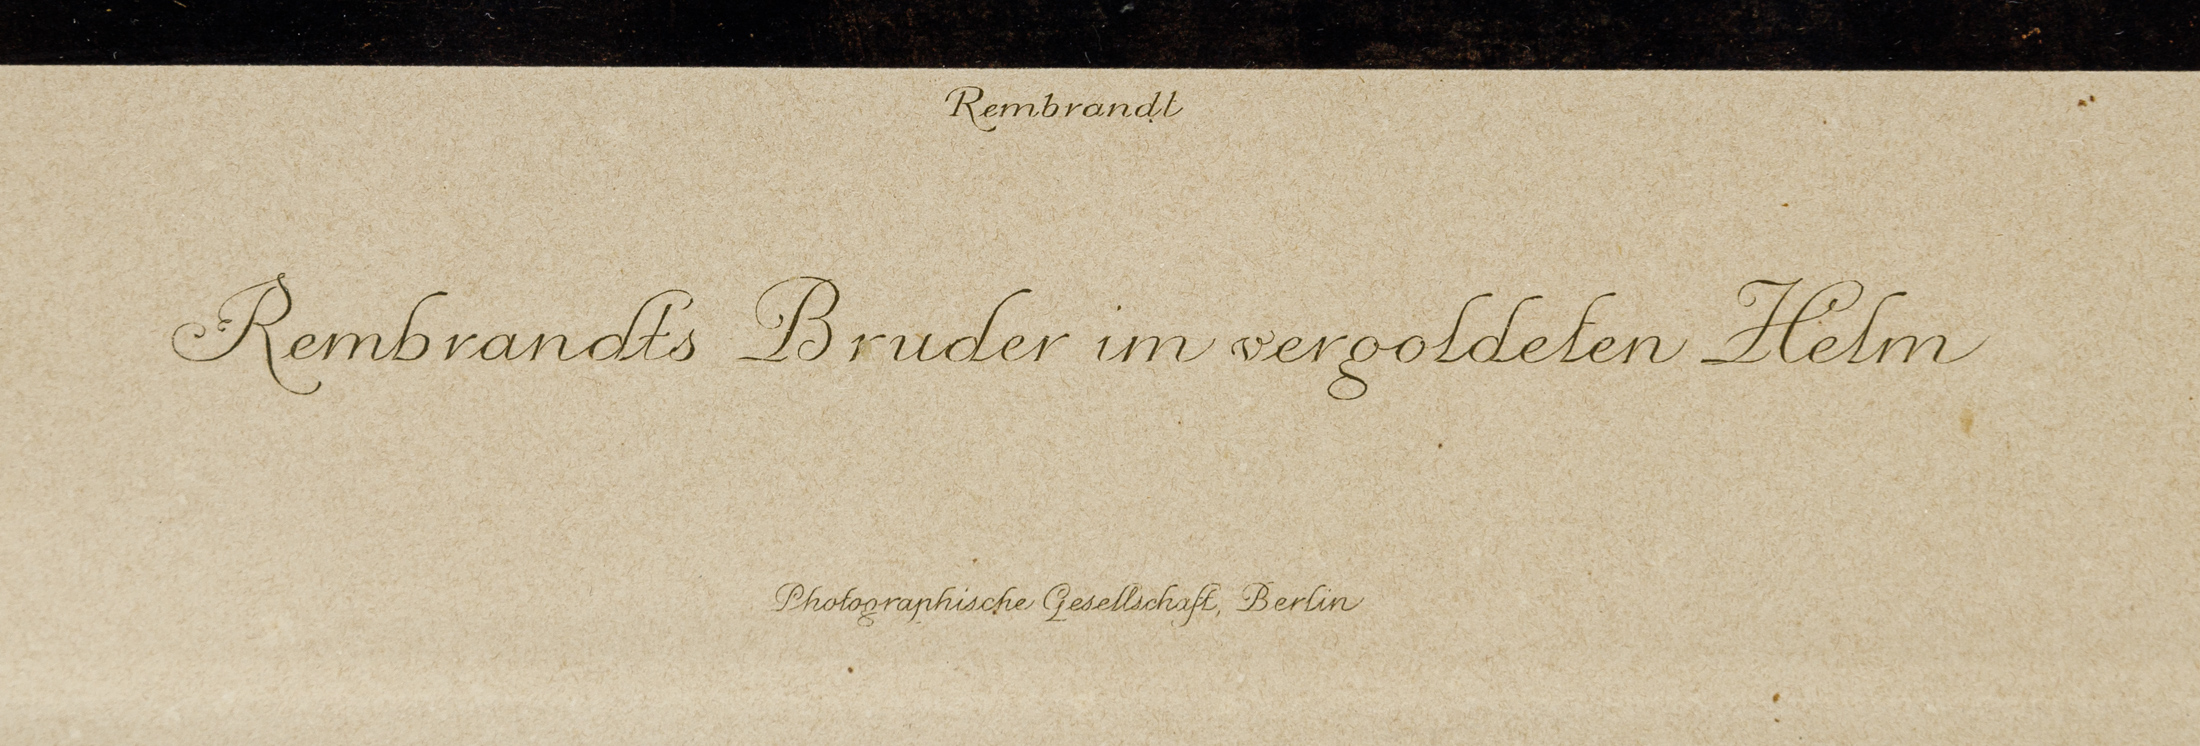 Rembrandt
Rembrandts Bruder im vergoldeten Helm
Photographische Gesellschaft, Berlin